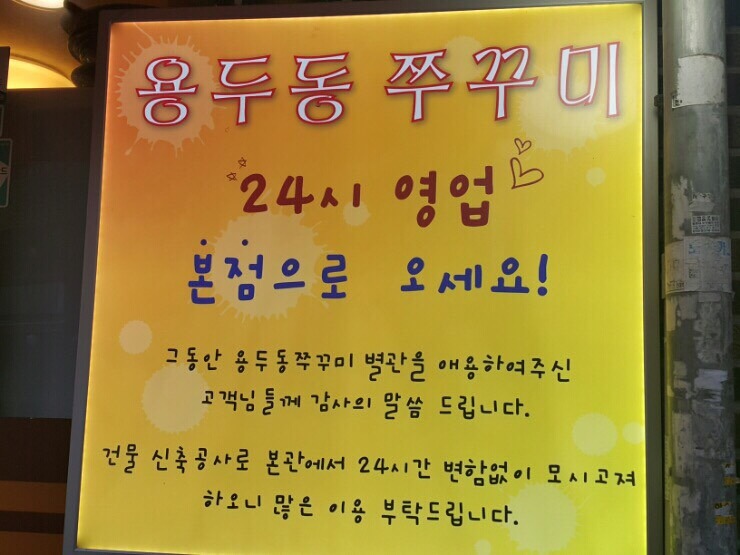 용두동 쭈꾸미
24시 영업
본점으로 오세요!
그동안 용두동쭈꾸미 별관을 애용하여주신
고객님들께 감사의 말씀 드립니다.
건물 신축공사로 본관에서 24시간 변함없이 모시고져
하오니 많은 이용 부탁드립니다.